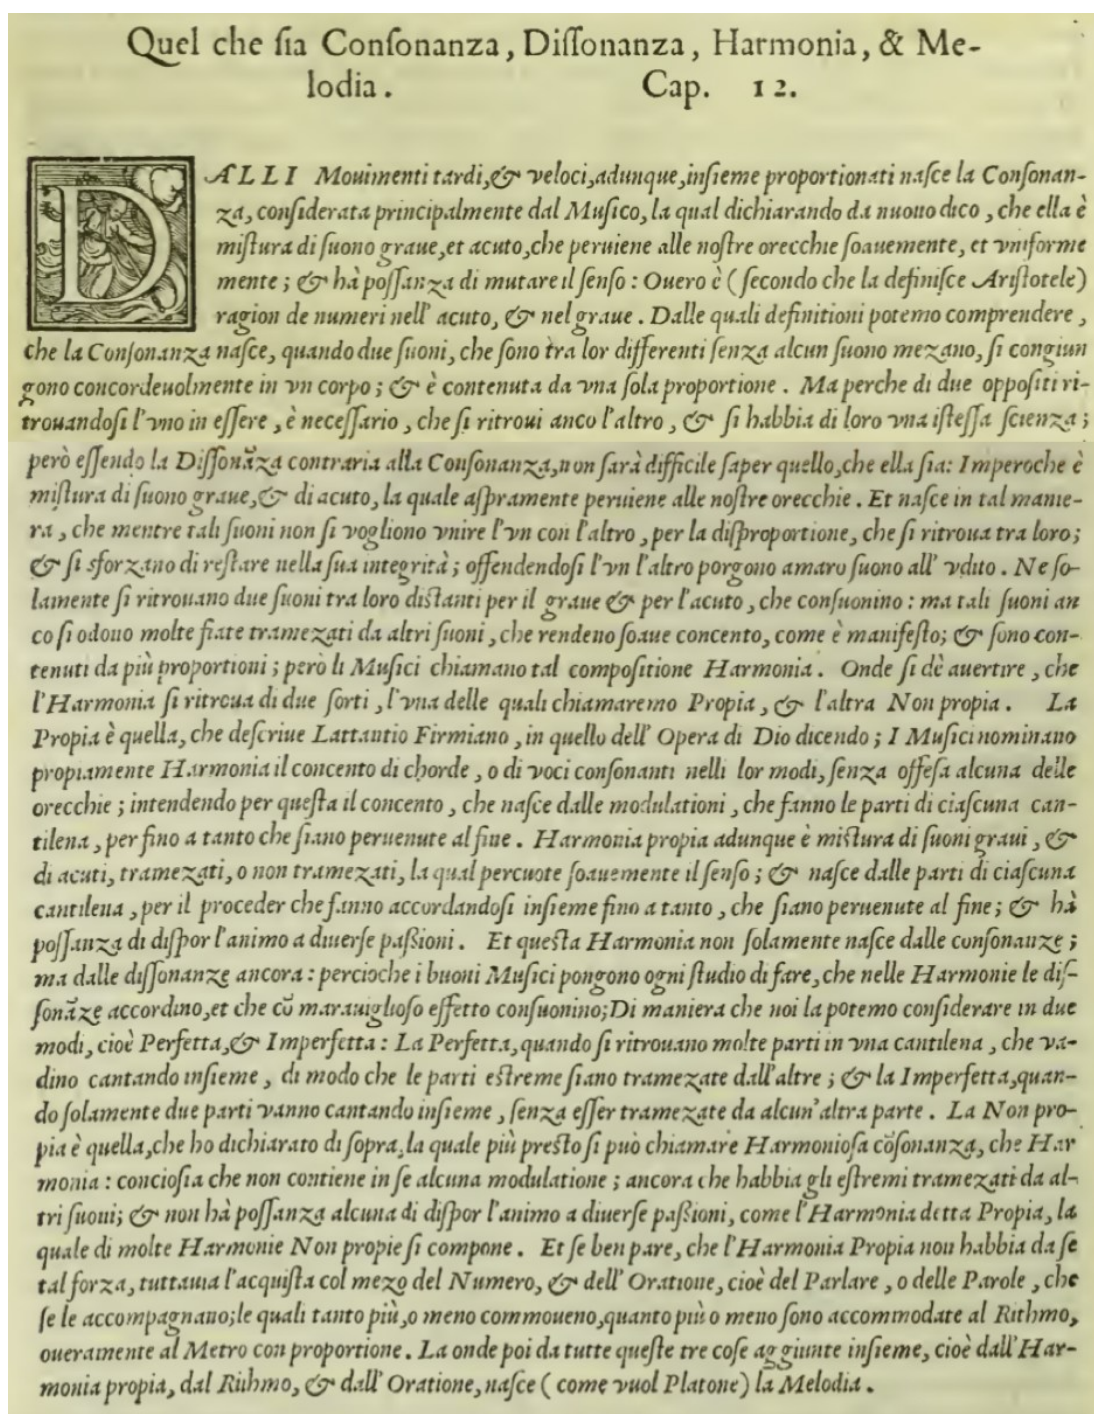 Quel che ſia Conſonanza, Diſſonanza, Harmonia, & Me-
lodia. Cap. 12.
DALLI Mouimenti tardi,& veloci,adunque,inſieme proportionati naſce la Conſonan-
za, conſiderata principalmente dal Muſico, la qual dichiarando da nuouo dico, che ella è
miſtura di ſuono graue,et acuto,che peruiene alle noſtre orecchie ſoauemente, et vniforme
mente; & hà poſſanza di mutare il ſenſo: Ouero è (ſecondo che la definiſce Ariſtotele)
ragion de numeri nell' acuto, & nel graue. Dalle quali definitioni potemo comprendere,
che la Conſonanza naſce, quando due ſuoni, che ſono tra lor differenti ſenza alcun ſuono mezano, ſi congiun
gono concordeuolmente in vn corpo; & è contenuta da vna ſola proportione. Ma perche di due oppoſiti ri-
trouandoſi l'vno in eſſere, è neceſſario, che ſi ritroui anco l'altro, & ſi habbia di loro vna iſteſſa ſcienza;
però eſſendo la Diſſonãza contraria alla Conſonanza,non ſarà difficile ſaper quello,che ella ſia: Imperoche è
miſtura di ſuono graue,& di acuto, la quale aſpramente peruiene alle noſtre orecchie. Et naſce in tal manie-
ra, che mentre tali ſuoni non ſi vogliono vnire l'vn con l'altro, per la diſproportione, che ſi ritroua tra loro;
& ſi sforzano di reſtare nella ſua integrità; offendendoſi l'vn l'altro porgono amaro ſuono all' vdito. Ne ſo-
lamente ſi ritrouano due ſuoni tra loro diſtanti per il graue & per l'acuto, che conſuonino: ma tali ſuoni an
co ſi odono molte fiate tramezati da altri ſuoni, che rendeno ſoaue concento, come è manifeſto; & ſono con-
tenuti da più proportioni; però li Muſici chiamano tal compoſitione Harmonia. Onde ſi dè auertire, che
l'Harmonia ſi ritroua di due ſorti, l'vna delle quali chiamaremo Propia, & l'altra Non propia. La
Propia è quella, che deſcriue Lattantio Firmiano, in quello dell' Opera di Dio dicendo; I Muſici nominano
propiamente Harmonia il concento di chorde, o di voci conſonanti nelli lor modi, ſenza offeſa alcuna delle
orecchie; intendendo per queſta il concento, che naſce dalle modulationi, che fanno le parti di ciaſcuna can-
tilena, per fino a tanto che ſiano peruenute al fine. Harmonia propia adunque è miſtura di ſuoni graui, &
di acuti, tramezati, o non tramezati, la qual percuote ſoauemente il ſenſo; & naſce dalle parti di ciaſcuna
cantilena, per il proceder che fanno accordandoſi inſieme fino a tanto, che ſiano peruenute al fine; & hà
poſſanza di diſpor l'animo a diuerſe paſſioni. Et queſta Harmonia non ſolamente naſce dalle conſonanze;
ma dalle diſſonanze ancora: percioche i buoni Muſici pongono ogni ſtudio di fare, che nelle Harmonie le diſ-
ſonãze accordino,et che cõ marauiglioſo effetto conſuonino;Di maniera che noi la potemo conſiderare in due
modi, cioè Perfetta,& Imperfetta: La Perfetta,quando ſi ritrouano molte parti in vna cantilena, che va-
dino cantando inſieme, di modo che le parti eſtreme ſiano tramezate dall'altre; & la Imperfetta,quan-
do ſolamente due parti vanno cantando inſieme, ſenza eſſer tramezate da alcun'altra parte. La Non pro-
pia è quella,che ho dichiarato di ſopra,la quale più preſto ſi può chiamare Harmonioſa cõſonanza, che Har
monia: concioſia che non contiene in ſe alcuna modulatione; ancora che habbia gli eſtremi tramezati da al-
tri ſuoni; & non hà poſſanza alcuna di diſpor l'animo a diuerſe paſſioni, come l'Harmonia detta Propia, la
quale di molte Harmonie Non propie ſi compone. Et ſe ben pare, che l'Harmonia Propia non habbia da ſe
tal forza, tuttauia l'acquiſta col mezo del Numero, & dell' Oratione, cioè del Parlare, o delle Parole, che
ſe le accompagnano;le quali tanto più,o meno commoueno,quanto più o meno ſono accommodate al Rithmo,
oueramente al Metro con proportione. La onde poi da tutte queſte tre coſe aggiunte inſieme, cioè dall'Har-
monia propia, dal Rithmo, & dall' Oratione, naſce (come vuol Platone) la Melodia.